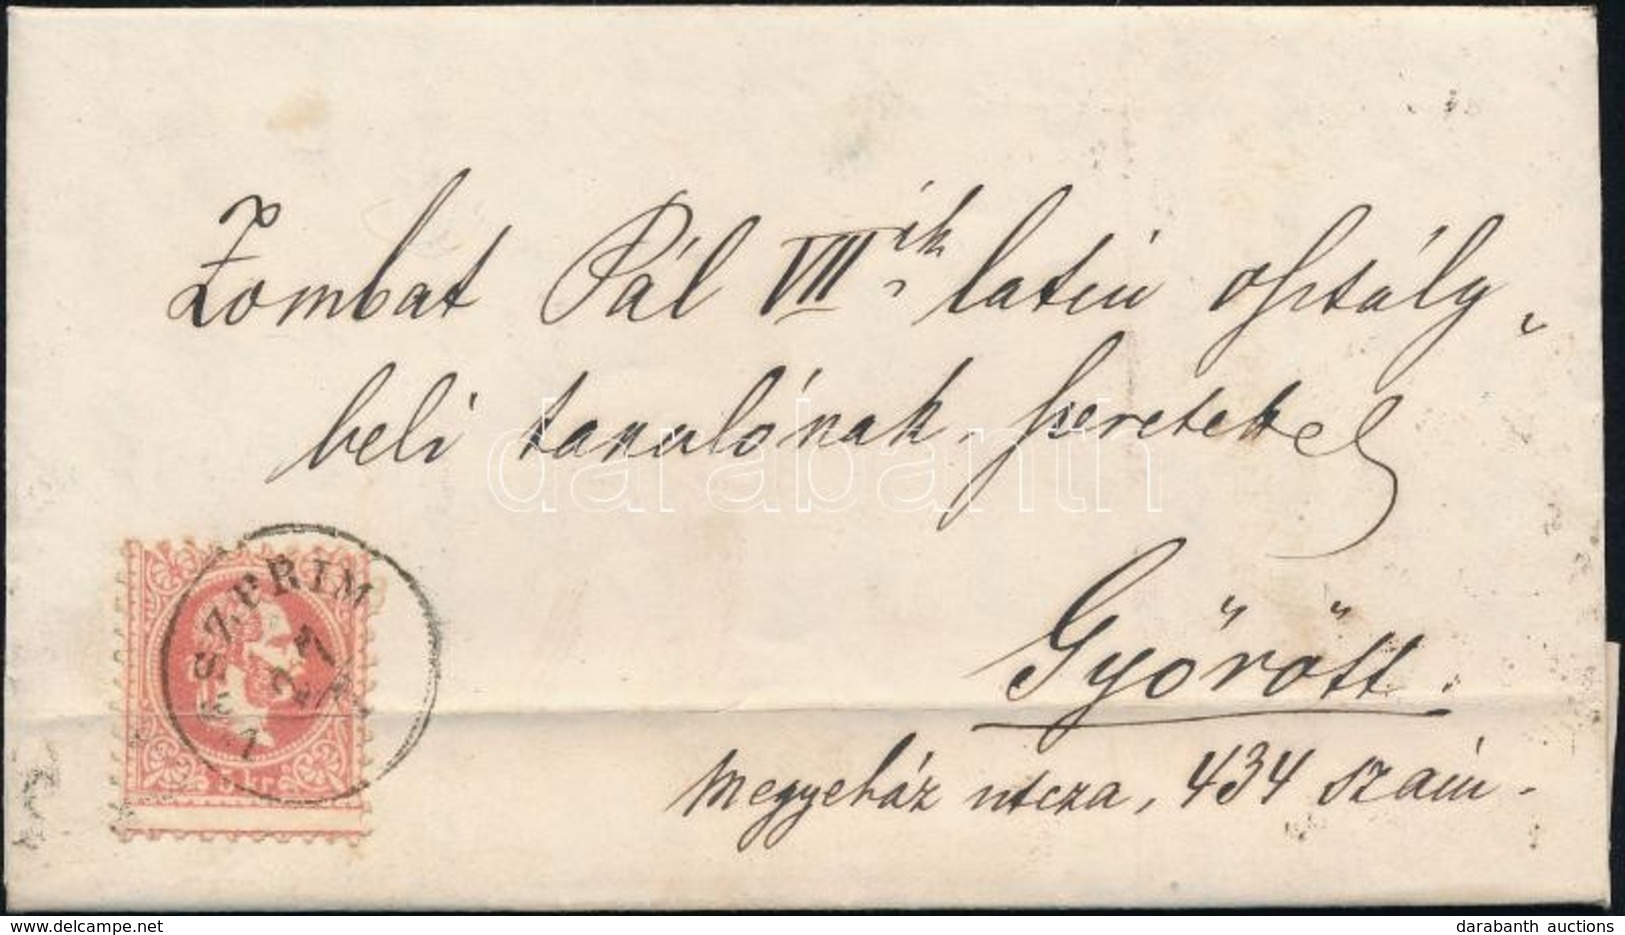 Zombat Pál VII ik latin osztály„
beli tanulónak, szeretek
Győrött.
megyeház utcza, 434 szám.
VESZPRIM
27
7
darabanth
darabanth auctions